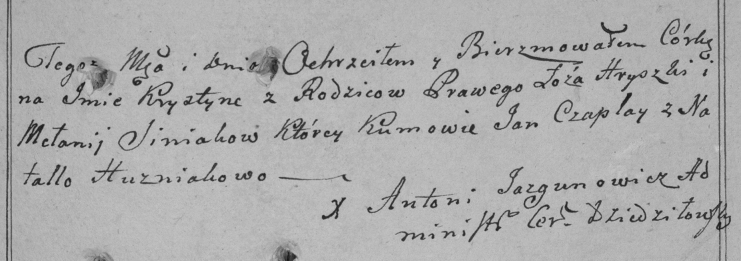 Tegoz Mca i dnia Ochrzciłem y Bierzmowałem Córkę
na Imie Krystynę z Rodzicow Prawego Łoża Hryszki i
Mełanij Siniakow którey Kumowie Jan Czapłay z Na
tallo Huzniakowo
X Antoni Jazgunowicz Ad
minis Cer. Dziedziłowsky